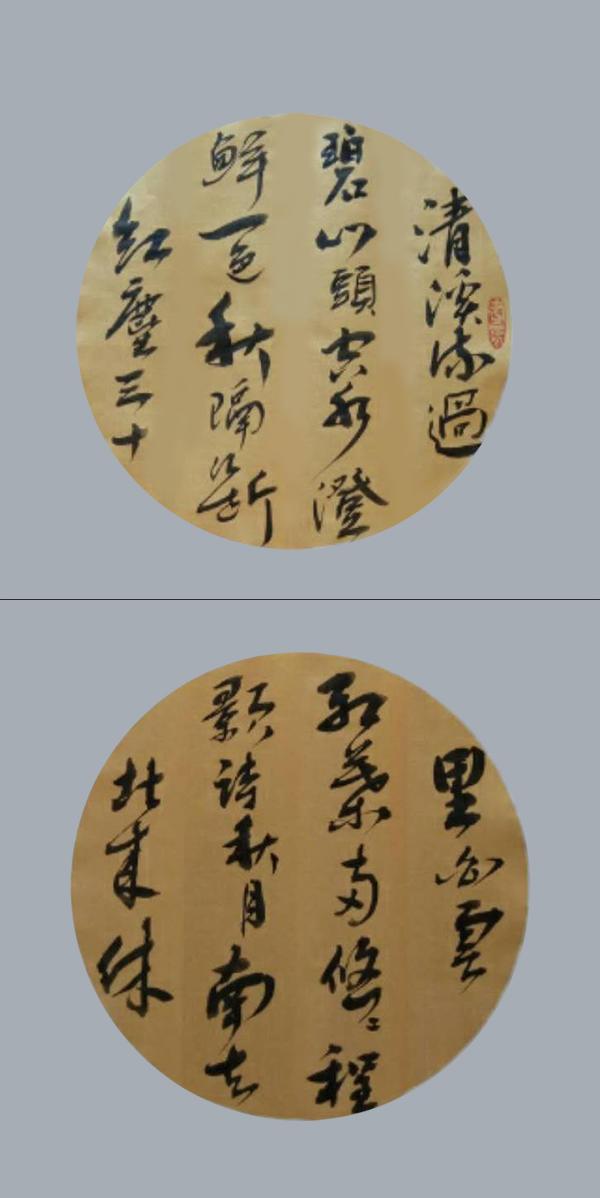 清溪流過
碧山頭空水澄
鮮一色秋隔斷
紅塵三十
里白雲
紅葉兩悠々程
顥詩秋月南去
北來休